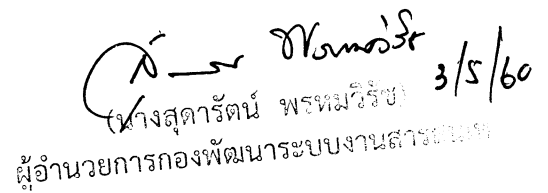 3/5/60
(นางสุดารัตน์ พรหมวิรัช)
ผู้อำนวยการกองพัฒนาระบบงานสารสนเทศ